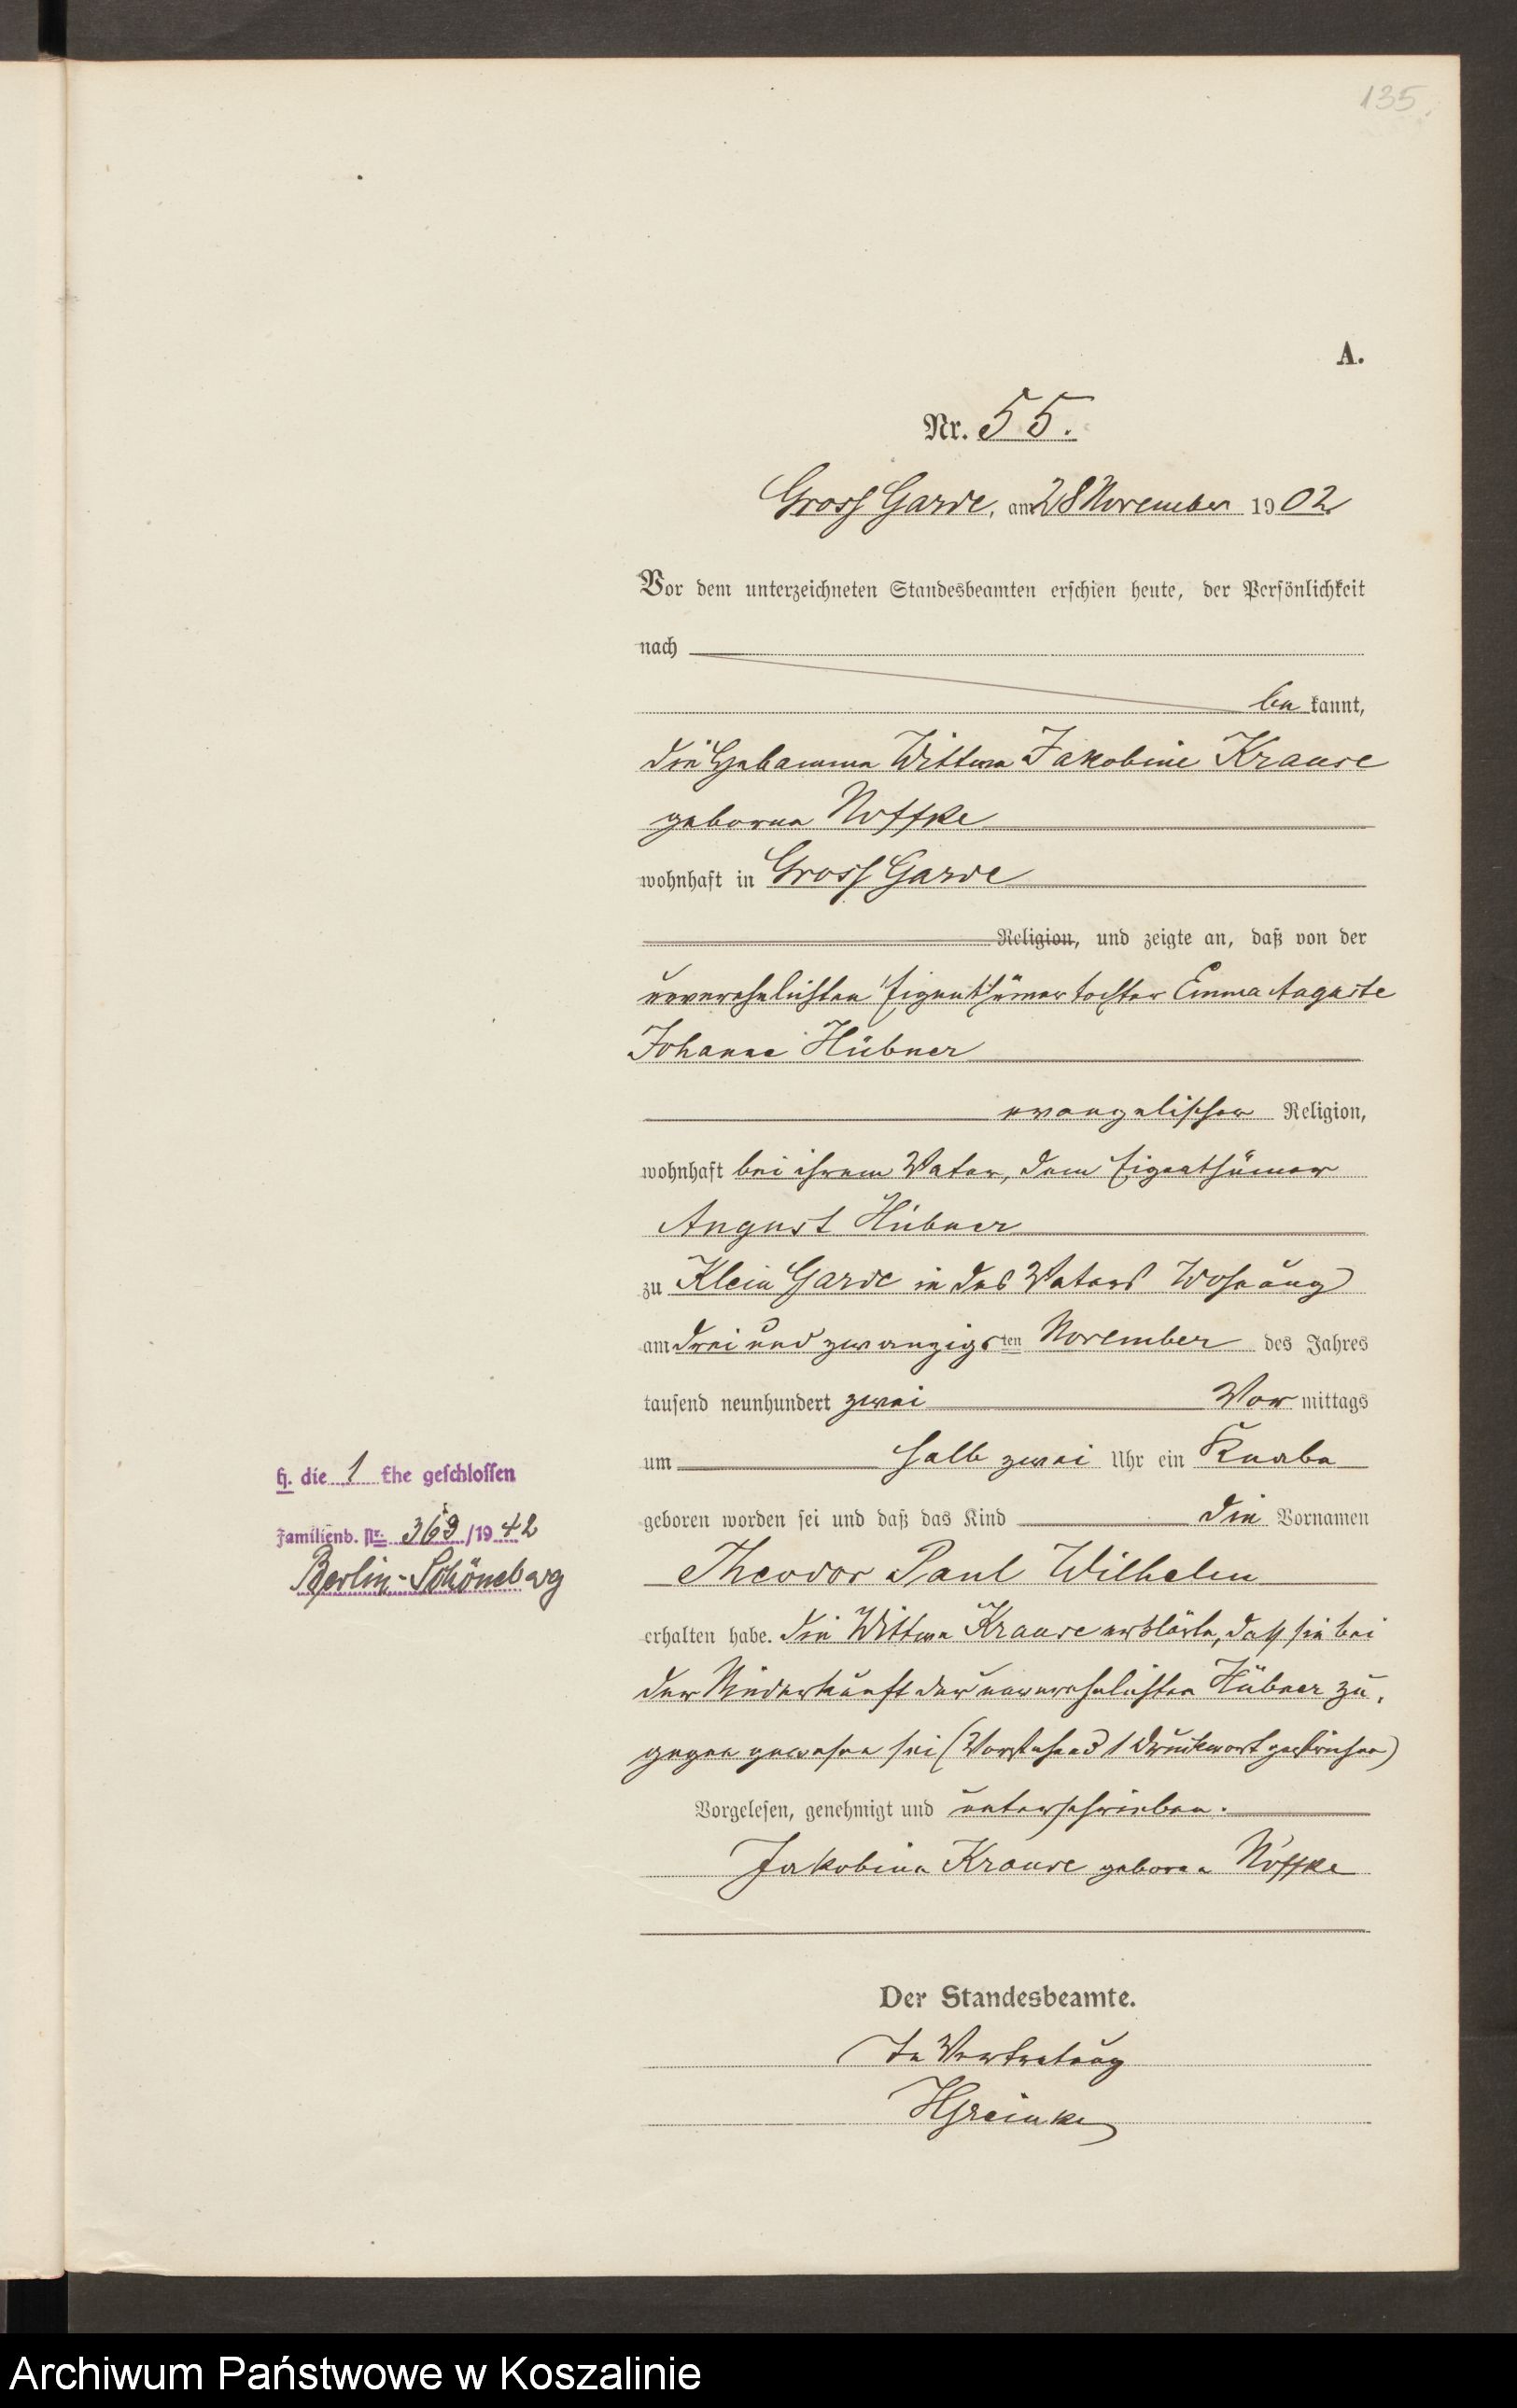 135.
A.
Nr. 55.
Gross Garde, am 28 November 1902
Vor dem unterzeichneten Standesbeamten erschien heute, der Persönlichkeit
nach
be kannt,
die Hebamme Wittwe Jakobine Krause
geborne Noffke
wohnhaft in Gross Garde
Religion, und zeigte an, daß von der
unverehelichten Eigenthümertochter Emma Auguste
Johanne Hübner
evangelischer Religion,
wohnhaft bei ihrem Vater, dem Eigenthümer
August Hübner
zu Klein Garde in des Vaters Wohnung
am drei und zwanzigsten November des Jahres
tausend neunhundert zwei Vor mittags
um halb zwei Uhr ein Knabe
geboren worden sei und daß das Kind die Vornamen
Theodor Paul Wilhelm
erhalten habe. Die Wittwe Krause erklärte, daß sie bei
der Niederkunft der unverehelichten Hübner zu-
gegen gewesen sei (Vorstehend 1 Druckwort gestrichen)
Vorgelesen, genehmigt und unterschrieben.
Jakobine Krause geborne Noffke
Der Standesbeamte.
In Vertretung
HGreinke
H. die 1 Ehe geschlossen
Familienb. Nr. 363/1942
Berlin-Schöneberg
Archiwum Państwowe w Koszalinie